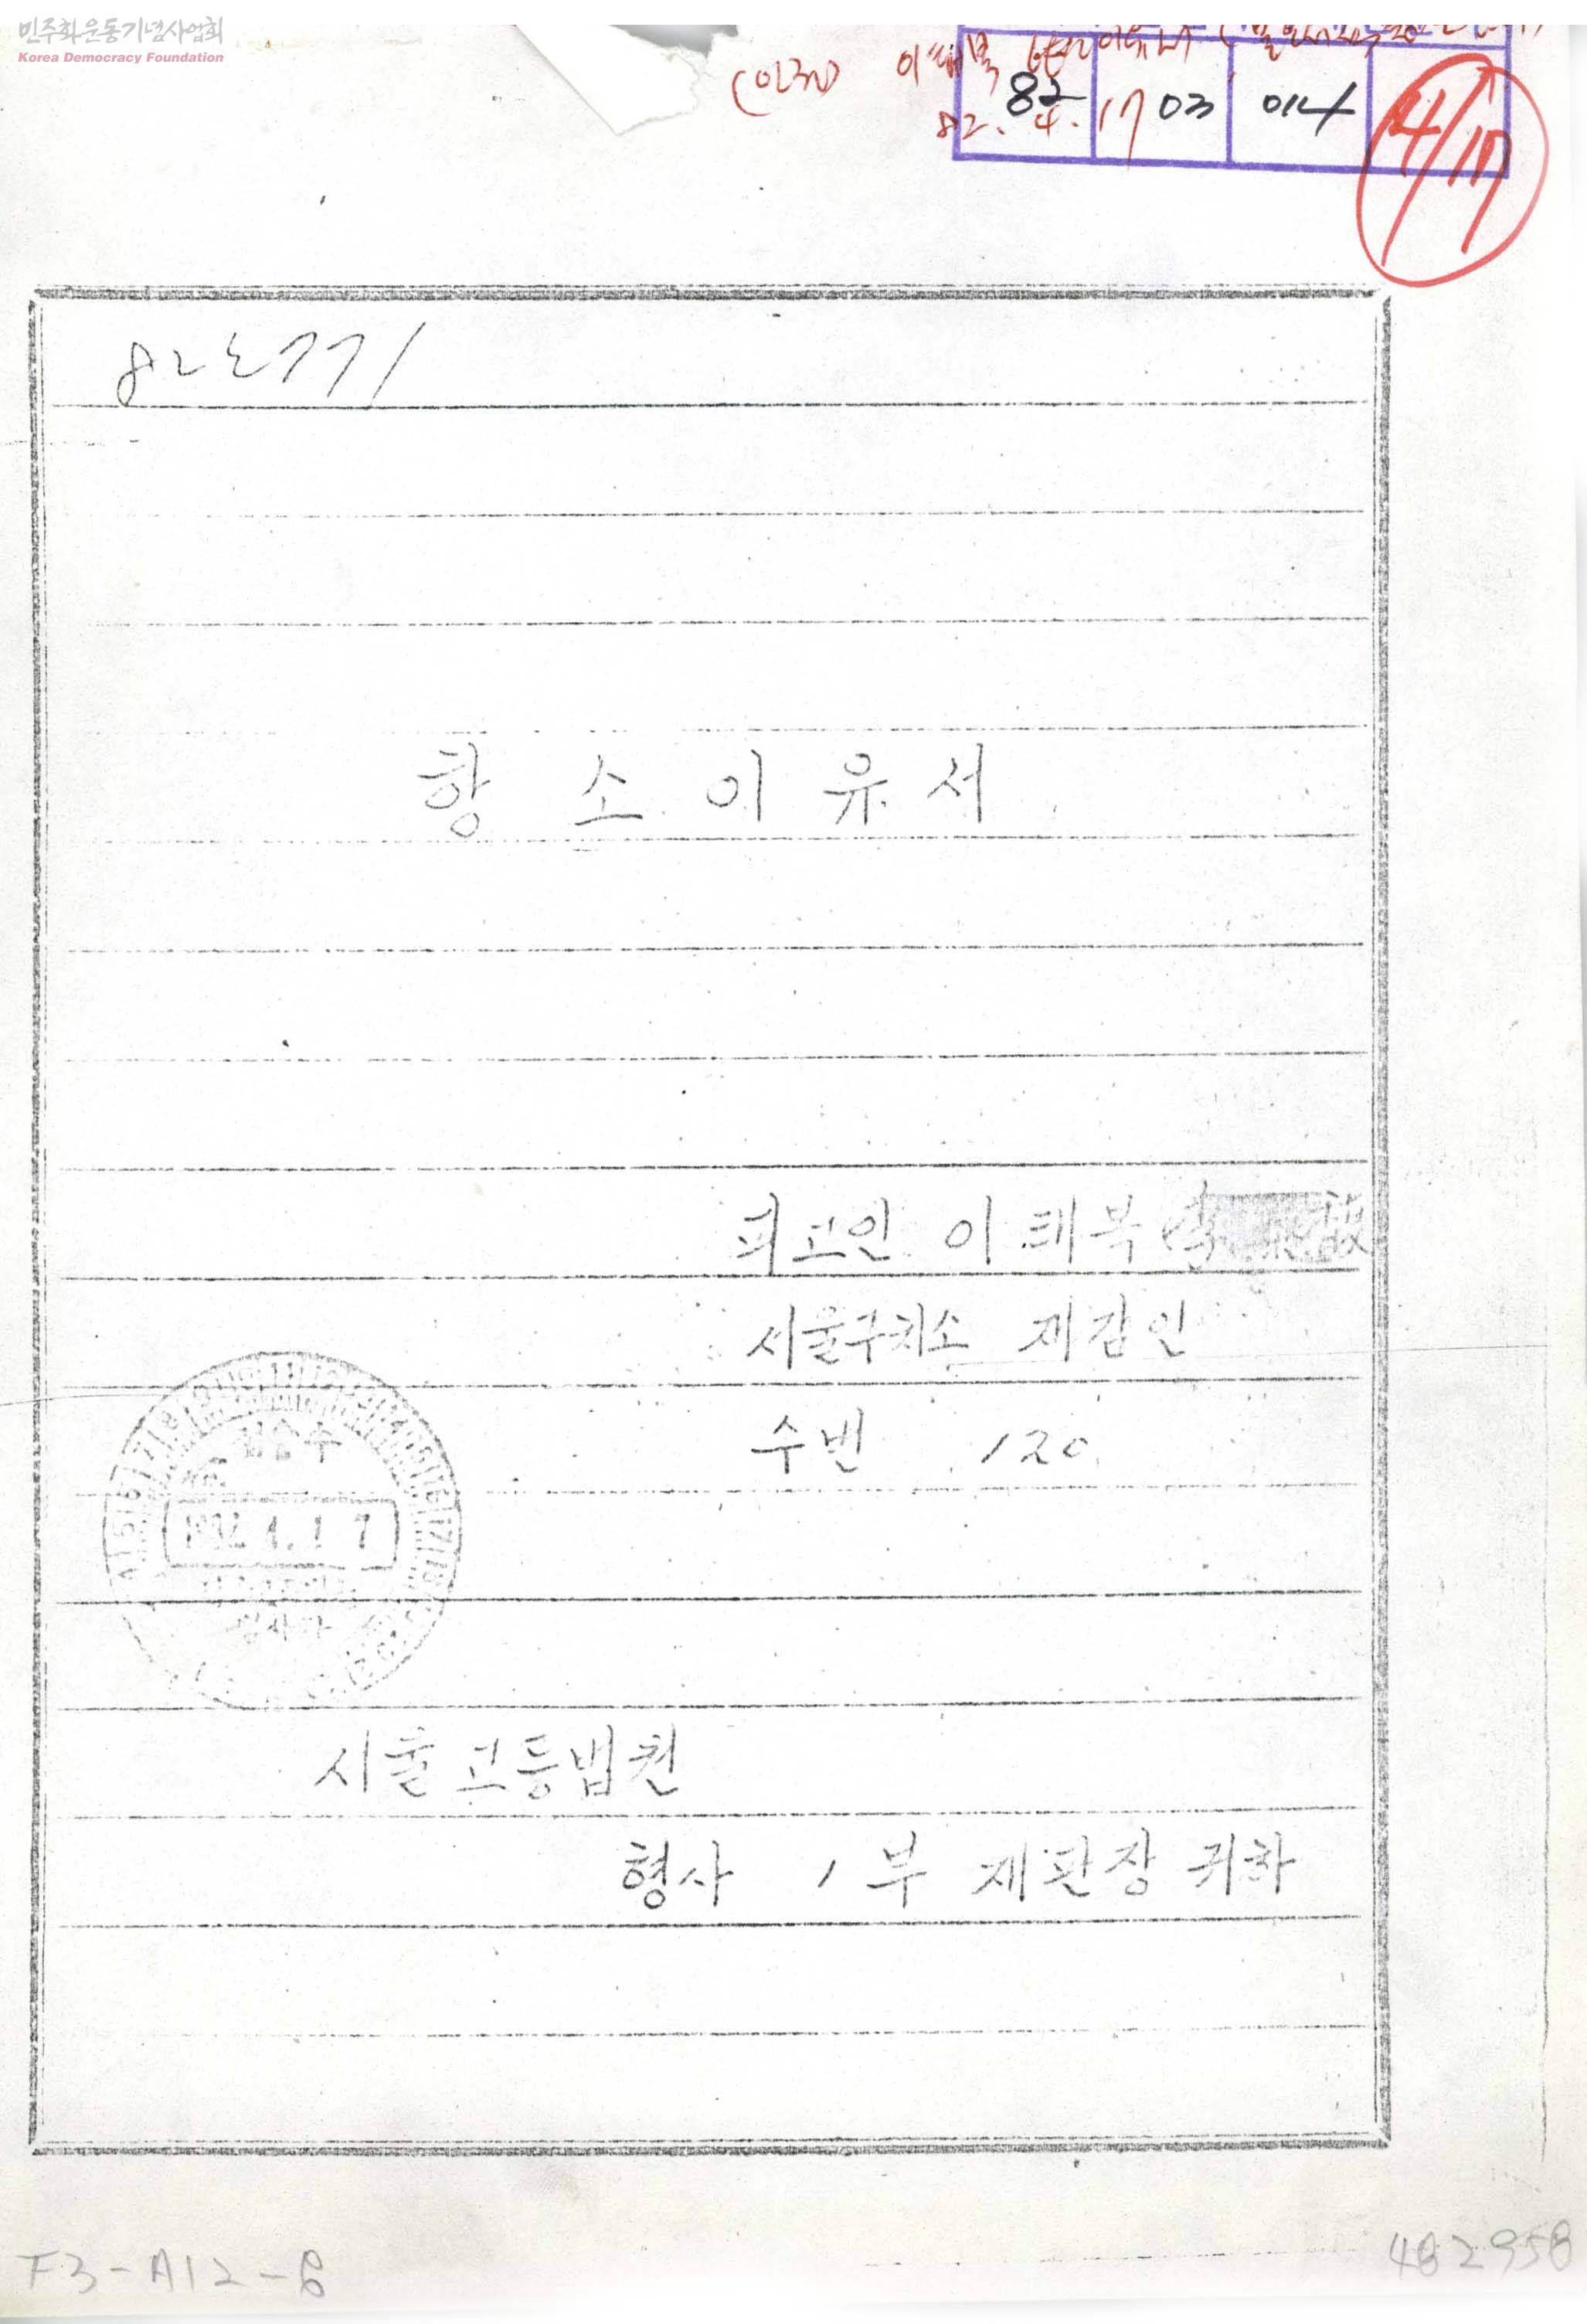 민주화운동기념사업회
Korea Democracy Foundation
이태복
82 03 014
82. 4. 17
4/17
82노771
항 소 이 유 서
피고인 이태복
서울구치소 재감인
수번 120
서울고등법원
형사 1부 재판장 귀하
F3-A12-6
482958